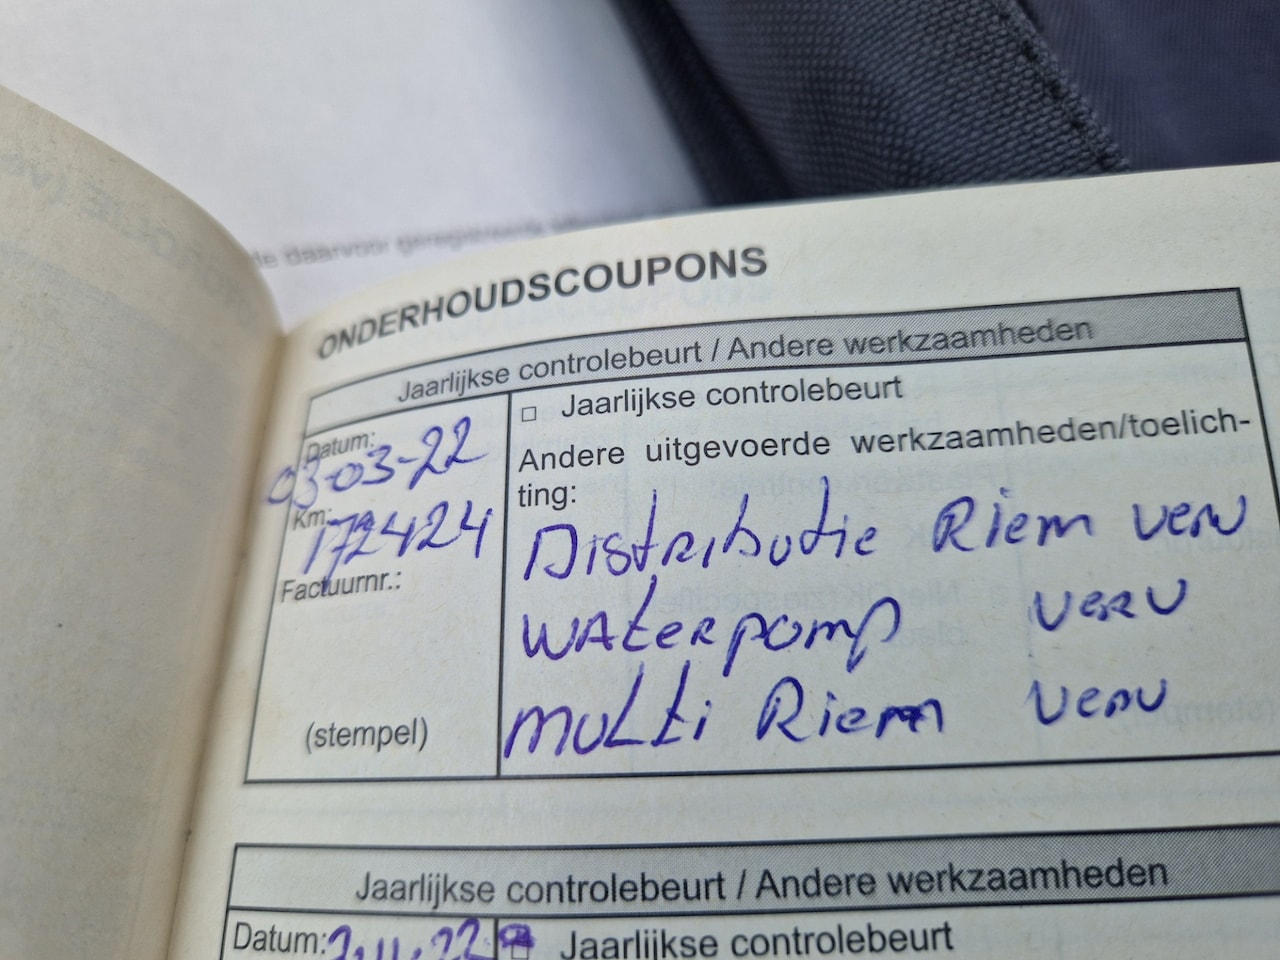 de daarvoor geregistreerde
ONDERHOUDSCOUPONS
Jaarlijkse controlebeurt / Andere werkzaamheden
Datum:
03-03-22
Km:
172424
Factuurnr.:
(stempel)
□ Jaarlijkse controlebeurt
Andere uitgevoerde werkzaamheden/toelich-
ting:
Distributie Riem verv
waterpomp verv
multi Riem verv
Jaarlijkse controlebeurt / Andere werkzaamheden
Datum:
Jaarlijkse controlebeurt